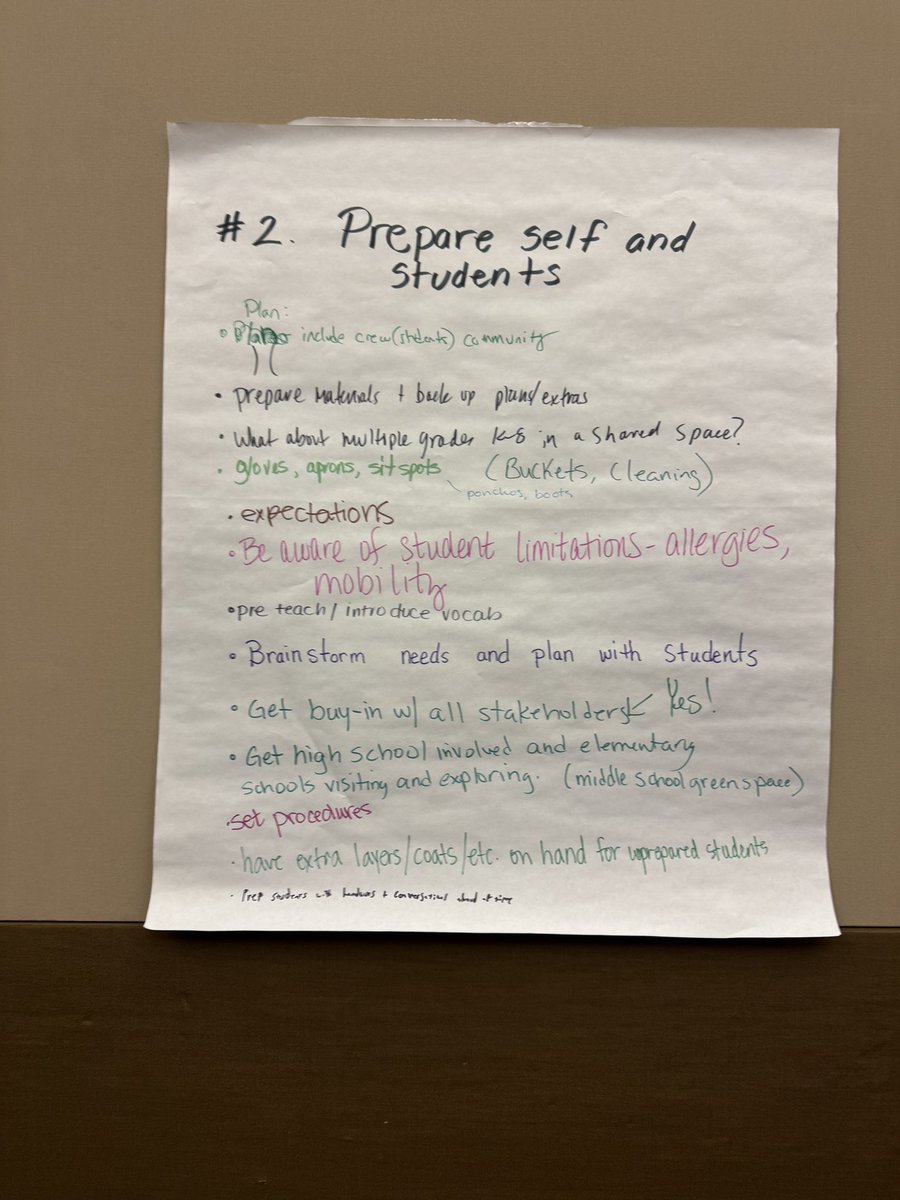 #2. Prepare self and
students
Plan:
• include crew (students) community
• prepare materials + back up plans/extras
• What about multiple grades K-8 in a shared space?
• gloves, aprons, sit spots (Buckets, Cleaning)
ponchos, boots
• expectations
• Be aware of student limitations - allergies,
mobility
• pre teach / introduce vocab
• Brainstorm needs and plan with students
• Get buy-in w/ all stakeholders ← Yes!
• Get high school involved and elementary
schools visiting and exploring. (middle school green space)
• set procedures
• have extra layers/coats/etc. on hand for unprepared students
• Prep students + conversations ahead of time